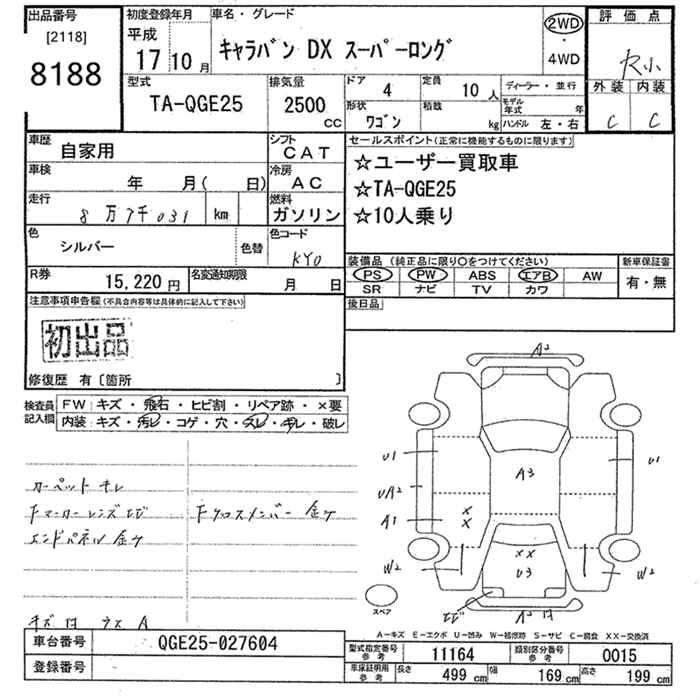 出品番号
[2118]
8188
初度登録年月
平成
17 10月
車名・グレード
キャラバン DX スーパーロング
2WD
・
4WD
評価点
外装 内装
C C
型式
TA-QGE25
排気量
2500
CC
ドア
4
定員
10 人
形状
ワゴン
積載
kg
ディーラー・並行
モデル年式 年
ハンドル 左・右
車歴
自家用
シフト
CAT
車検
年 月( 日)
冷房
AC
走行
8万7千031 km
燃料
ガソリン
色
シルバー
色替
色コード
KY0
R券
15,220 円
名変通知期限
月 日
セールスポイント(正常に機能するものに限ります)
☆ユーザー買取車
☆TA-QGE25
☆10人乗り
装備品 (純正品に限り○をつけてください)
PS PW ABS エアB AW
SR ナビ TV カワ
新車保証書
有・無
後日品
注意事項申告欄(不具合内容等は具体的に記入して下さい)
初出品
修復歴 有〔箇所 〕
検査員
記入欄
FW キズ・飛石・ヒビ割・リペア跡・×要
内装 キズ・汚レ・コゲ・穴・スレ・キレ・破レ
カーペット キレ
Fマーカーレンズ ヒビ
Fクロスメンバー
エンドパネル
A2
U1
A3
U1
UA2
A1
×
×
××
U3
W2
W2
ヒビ
A2
スペア
A-キズ E-エクボ U-凹み W-補修跡 S-サビ C-腐食 XX-交換済
車台番号
QGE25-027604
登録番号
型式指定番号
参考
11164
類別区分番号
参考
0015
車庫証明用
参考
長さ
499 cm
幅
169 cm
高さ
199 cm